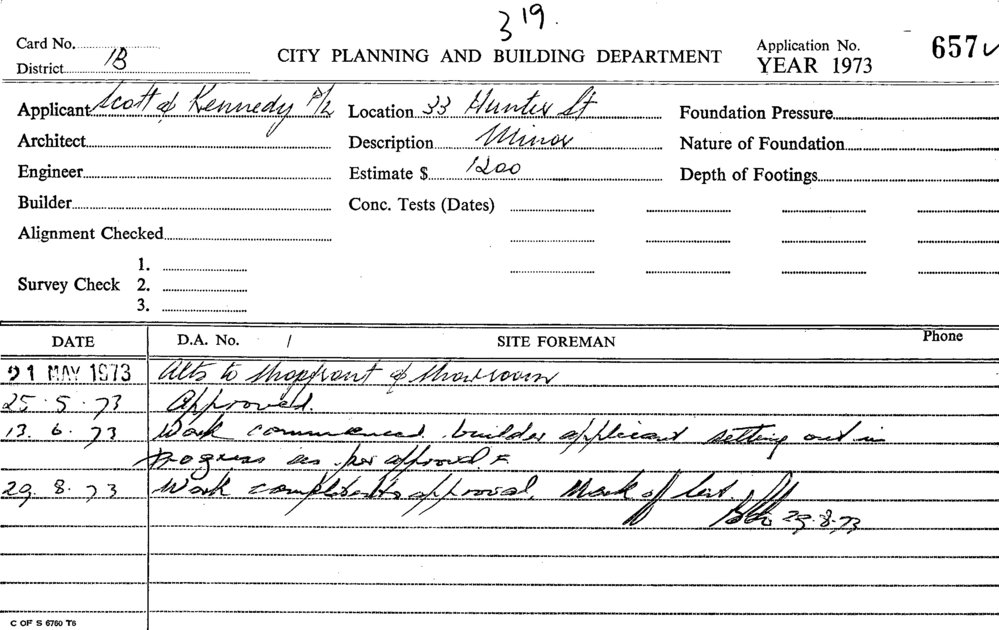 319.
Card No.
CITY PLANNING AND BUILDING DEPARTMENT
Application No. 657
District 1B
YEAR 1973
Applicant Scott & Kennedy P/L Location 33 Hunter St Foundation Pressure
Architect Description Minor Nature of Foundation
Engineer Estimate $ 1200 Depth of Footings
Builder Conc. Tests (Dates)
Alignment Checked
1.
Survey Check 2.
3.
DATE D.A. No. / SITE FOREMAN Phone
21 MAY 1973 Alts to shopfront & showroom
25.5.73 Approved.
13.6.73 Work commenced, builder applicant setting out in
progress as per approval
29.8.73 Work completed to approval. Mark off list.
29.8.73
C OF S 6760 T6